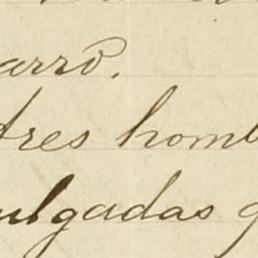 arró.
tres homb
ulgadas q